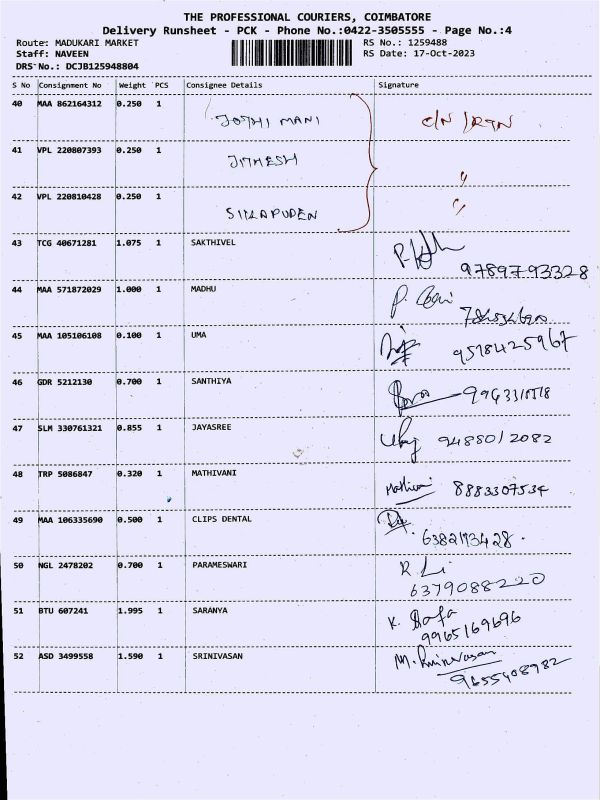 THE PROFESSIONAL COURIERS, COIMBATORE
Delivery Runsheet - PCK - Phone No.:0422-3505555 - Page No.:4
Route: MADUKARI MARKET RS No.: 1259488
Staff: NAVEEN RS Date: 17-Oct-2023
DRS No.: DCJB125948804
S No Consignment No Weight PCS Consignee Details Signature
40 MAA 862164312 0.250 1 JOTHI MANI C/N /RTN
41 VPL 220807393 0.250 1 JITHESH "
42 VPL 220810428 0.250 1 "
43 TCG 40671281 1.075 1 SAKTHIVEL
9789793328
44 MAA 571872029 1.000 1 MADHU
45 MAA 105106108 0.100 1 UMA
9518425967
46 GDR 5212130 0.700 1 SANTHIYA
47 SLM 330761321 0.855 1 JAYASREE 9488012082
48 TRP 5086847 0.320 1 MATHIVANI Mathivani 8883307534
49 MAA 106335690 0.500 1 CLIPS DENTAL
50 NGL 2478202 0.700 1 PARAMESWARI
6379088220
51 BTU 607241 1.995 1 SARANYA K.
9965169696
52 ASD 3499558 1.590 1 SRINIVASAN M.
9655408982